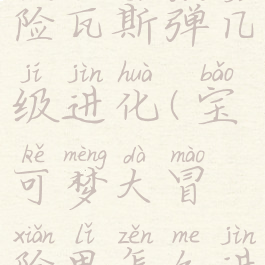 险瓦斯弹几
jí jìn huà bǎo
级进化(宝
kě mèng dà mào
可梦大冒
xiǎn lǐ zěn me jìn
险里怎么进